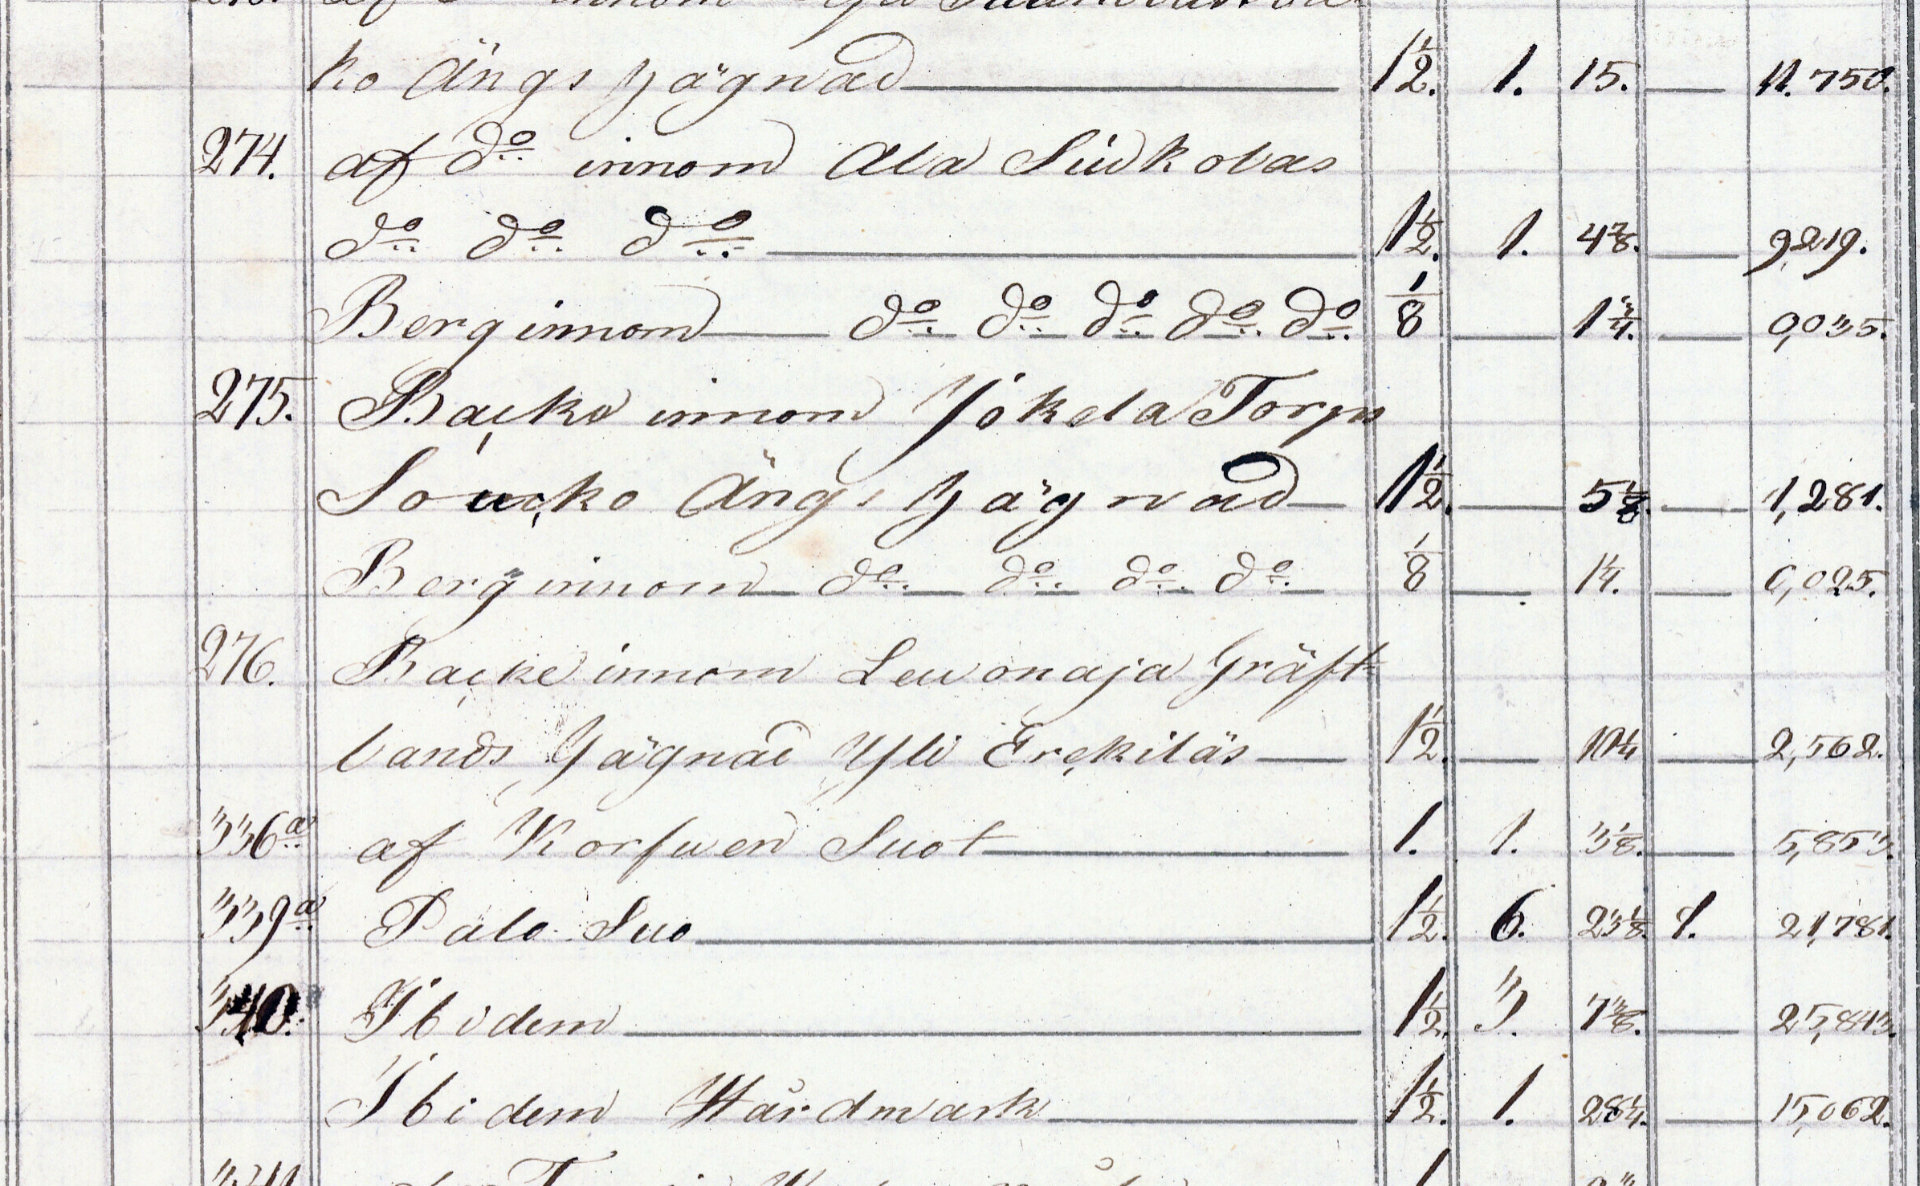 ko Ängs Hägnad 1½. 1. 15. — 11.750.
274. af do innom Ala Siukolas
do do do 1½. 1. 4⅞. — 9,219.
Berg innom do do do do do ⅛ — 1¾. — 0,035.
275. Backe innom Jokela Torps
Soucko Ängs Hägnad 1½. — 5⅛. — 1,281.
Berg innom do do do do ⅛ — 1¼. — 0,025.
276. Backe innom Leuonaja Gräft-
lands Hägnad Yli Erckiläs 1½. — 10¼ — 2,562.
336a af Korfwen Suot 1. 1. 3⅛. — 5,853.
339a Palo Suo 1½. 6. 23⅛. 1. 21,781.
340. Ibidem 1½. 3. 7⅜. — 25,843.
Ibidem Hårdmark 1½. 1. 28¼. — 15,062.